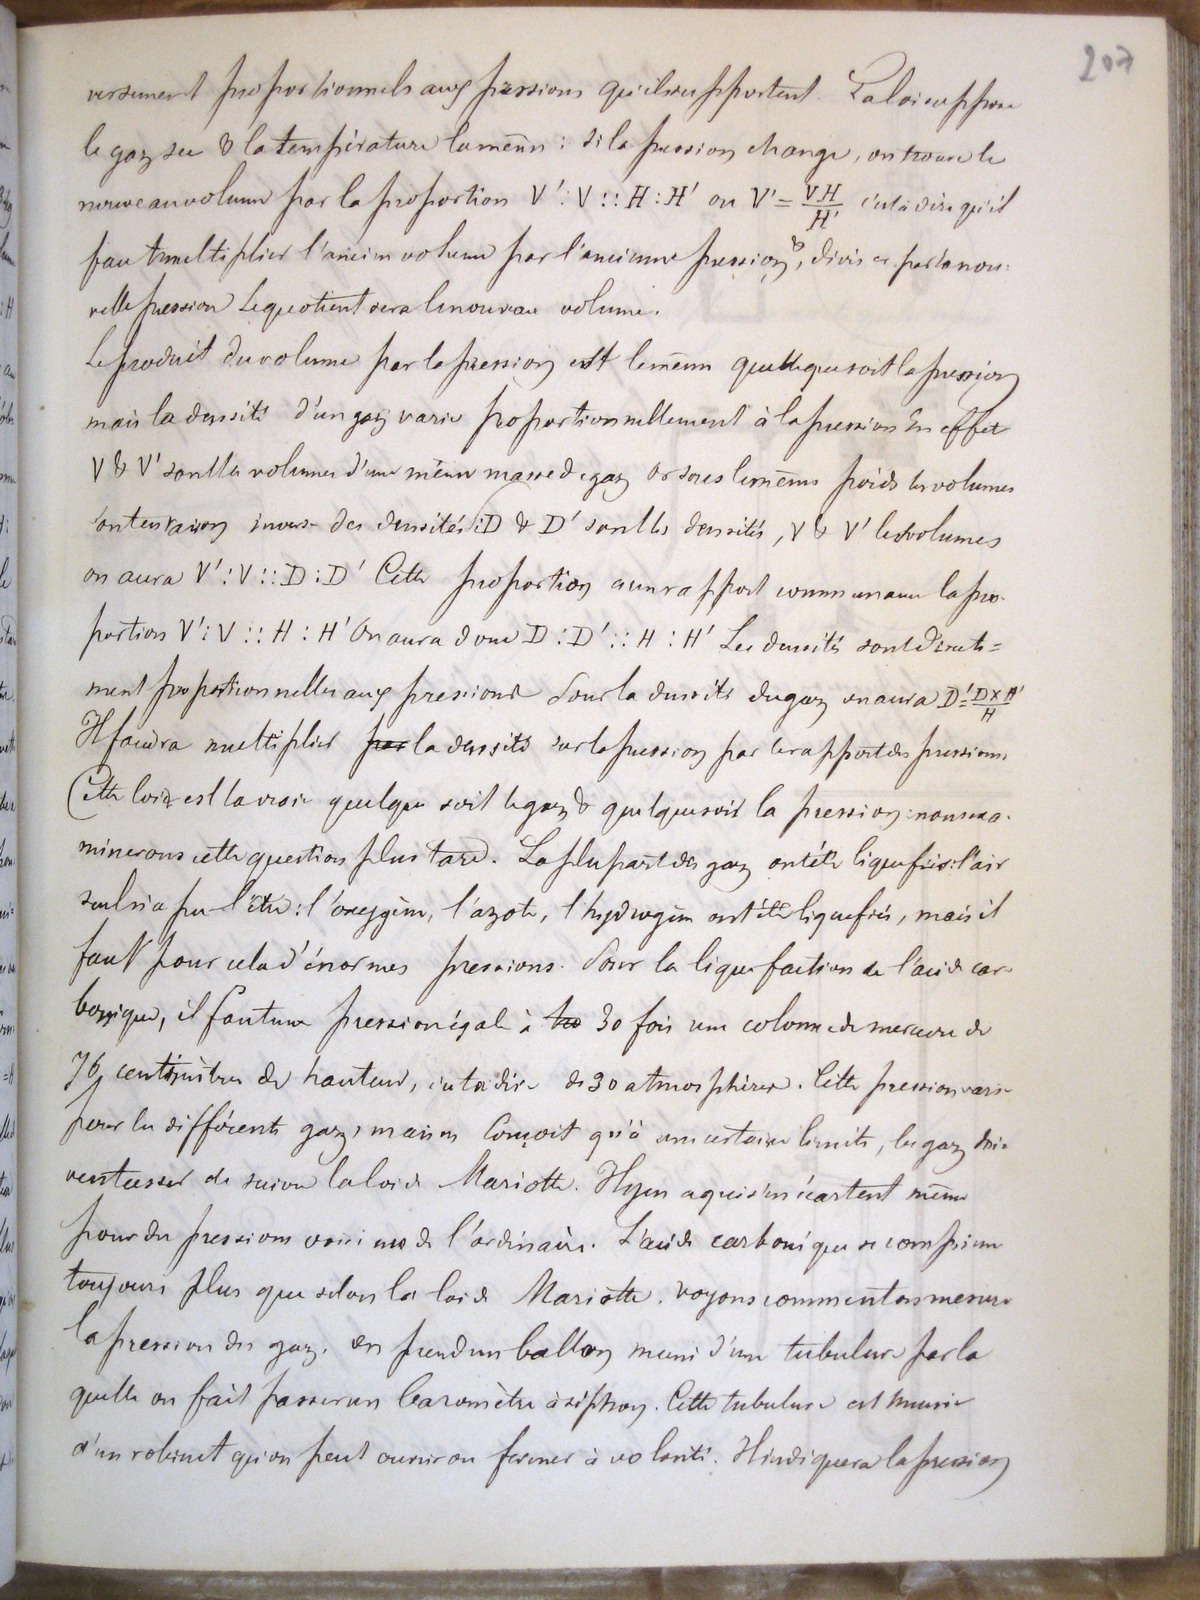 207
versement proportionnels aux pressions qu'ils supportent. La loi suppose
le gaz sec & la température la même : si la pression change, on trouve le
nouveau volume par la proportion V' : V :: H : H' ou V' = VH/H' c'est à dire qu'il
faut multiplier l'ancien volume par l'ancienne pression, & diviser par la nou:
velle pression Le quotient sera le nouveau volume.
Le produit du volume par la pression est le même quelle que soit la pression
mais la densité d'un gaz varie proportionnellement à la pression En effet
V & V' sont les volumes d'une même masse de gaz Or sous le même poids les volumes
sont en raison inverse des densités : D & D' sont les densités, V & V' les volumes
on aura V' : V :: D : D' Cette proportion a un rapport commun avec la pro-
portion V' : V :: H : H' On aura donc D : D' :: H : H' Les densités sont directe=
ment proportionnelles aux pressions Pour la densité du gaz on aura D' = D x H'/H
Il faudra multiplier par la densité sur la pression par le rapport des pressions
Cette loi est la vraie quelque soit le gaz & quelque soit la pression : nous exa-
minerons cette question plus tard. La plupart des gaz ont été liquefiés : l'air
seul n'a pu l'être : l'oxygène, l'azote, l'hydrogène ont été liquefiés, mais il
faut pour cela d'énormes pressions. Pour la liquefaction de l'acide car-
bonique, il faut une pression égale à 30 fois une colonne de mercure de
76 centimètres de hauteur, c'est à dire de 30 atmosphères. Cette pression varie
pour les différents gaz, mais on conçoit qu'à une certaine limite, les gaz doi-
vent cesser de suivre la loi de Mariotte. Il y en a qui s'en écartent même
pour des pressions voisines de l'ordinaire. L'acide carbonique se comprime
toujours plus que selon la loi de Mariotte. Voyons comment on mesure
la pression des gaz. On prend un ballon muni d'une tubulure par la
quelle on fait passer un baromètre à siphon. Cette tubulure est munie
d'un robinet qu'on peut ouvrir ou fermer à volonté. Il indiquera la pression